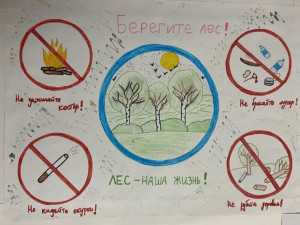 Берегите лес!
Не зажигайте
костёр!
Не бросайте мусор!
ЛЕС – НАША ЖИЗНЬ!
Не кидайте окурки!
Не рубите деревья!